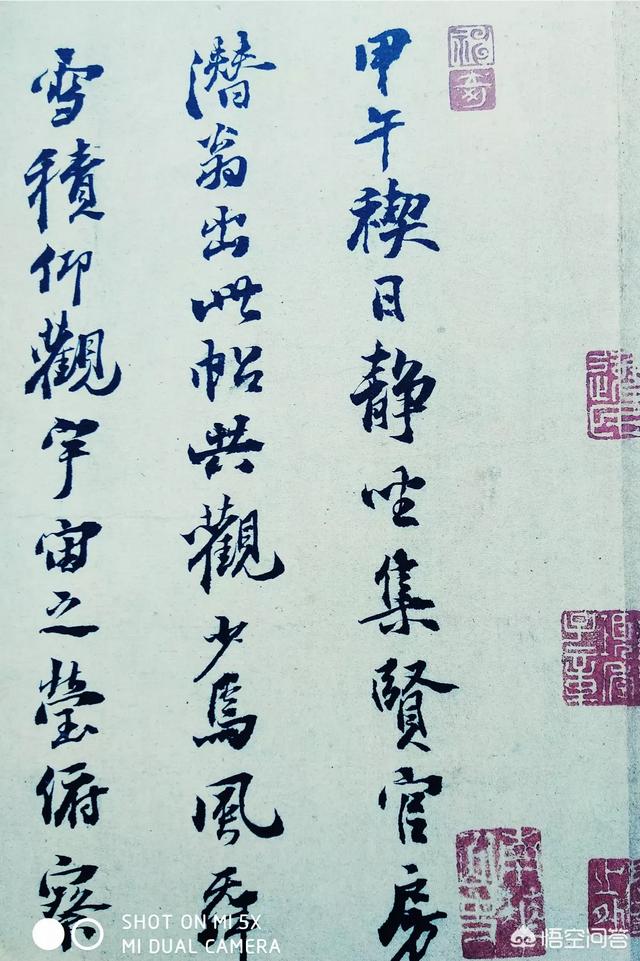 甲午禊日静坐集賢官房
潛翁出此帖共觀少焉風霽
雪積仰觀宇宙之瑩俯察
SHOT ON MI 5X
MI DUAL CAMERA
悟空问答